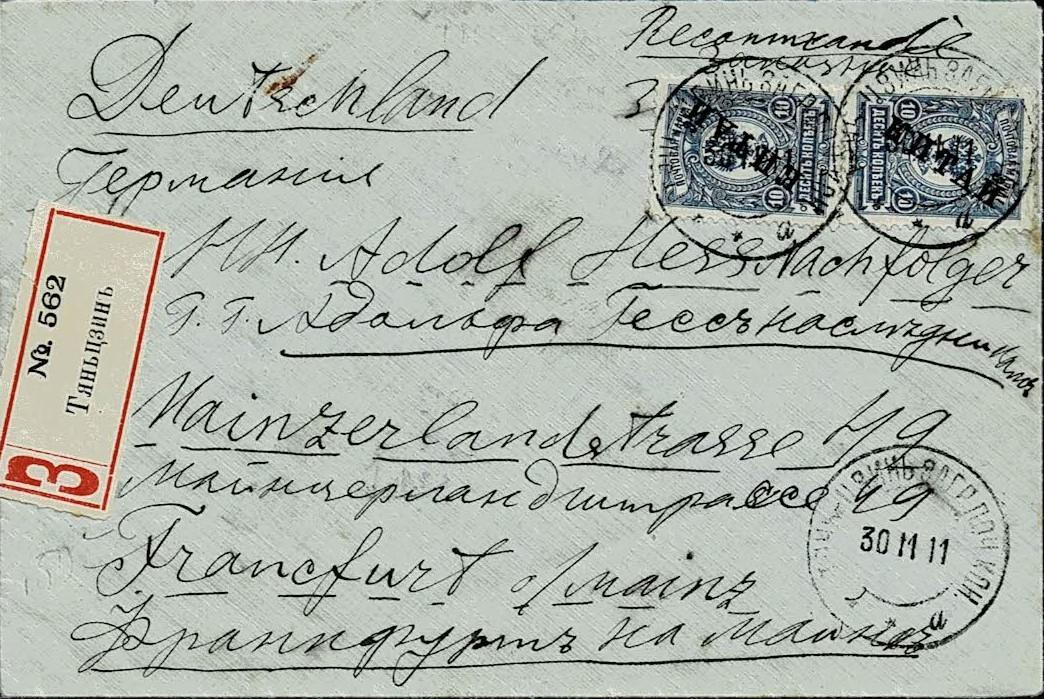 Recommandé
Заказное
Deutschland
Германия
HH. Adolf Hess Nachfolger
Г. Г. Адольфа Гессъ наслѣдникамъ
Mainzerlandstrasse 49
Майнцерландштрассе 49
Francfurt a/mainz
Франкфуртъ на Майнѣ
No. 562
Тяньцзинь
З
ПОЧТОВАЯ МАРКА
10
ДЕСЯТЬ КОПѢЕКЪ
КИТАЙ
ПОЧТОВАЯ МАРКА
10
ДЕСЯТЬ КОПѢЕКЪ
КИТАЙ
30 11 11
а